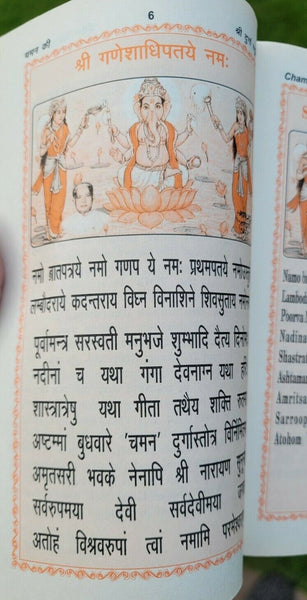 6
चमन की
श्री दुर्गा
श्री गणेशाधिपतये नमः
नमो ब्रातपत्रये नमो गणप ये नमः प्रथमपतये
लम्बोदराये कदन्तराय विघ्न विनाशिने शिवसुताय
पूर्वामन्त्र सरस्वती मनुभजे शुम्भादि दैत्या
नदीनां च यथा गंगा देवनाग्न यथा
शास्त्रात्रेषु यथा गीता तथैय शक्ति
अष्टम्मां बुधवारे 'चमन' दुर्गास्तोत्र
अमृतसरी भवके नेनापि श्री नारायण
सर्वरुपमया देवी सर्वदेवीमया
अतोहं विश्रवरुपां त्वां नमामि
Cham
Namo
Lamb
Poorva
Nadina
Shastrat
Ashtama
Amritsa
Sarroop
Atohom